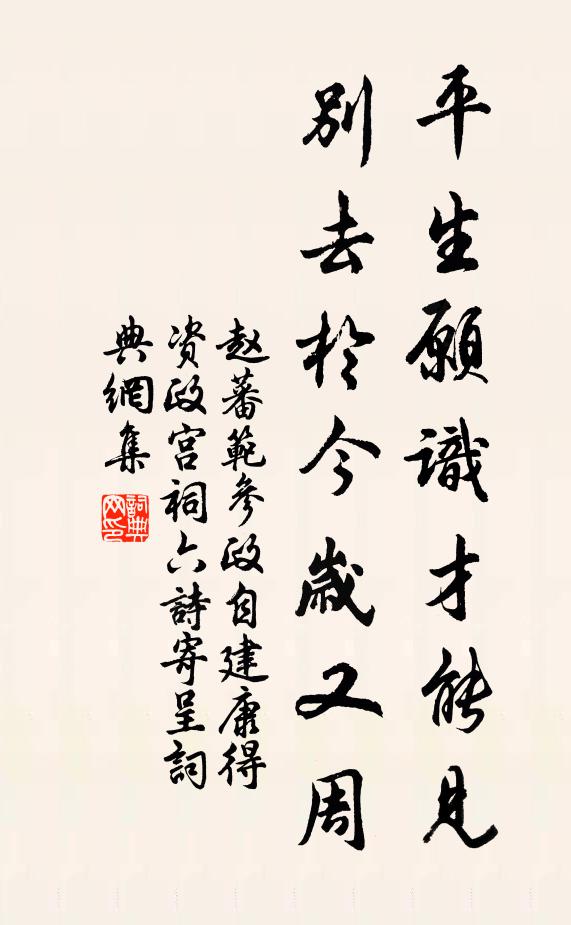 平生願識才能見
別去於今歲又周
赵蕃範參政自建康得
资政宫祠六詩寄呈詞
典網集
詞典网印